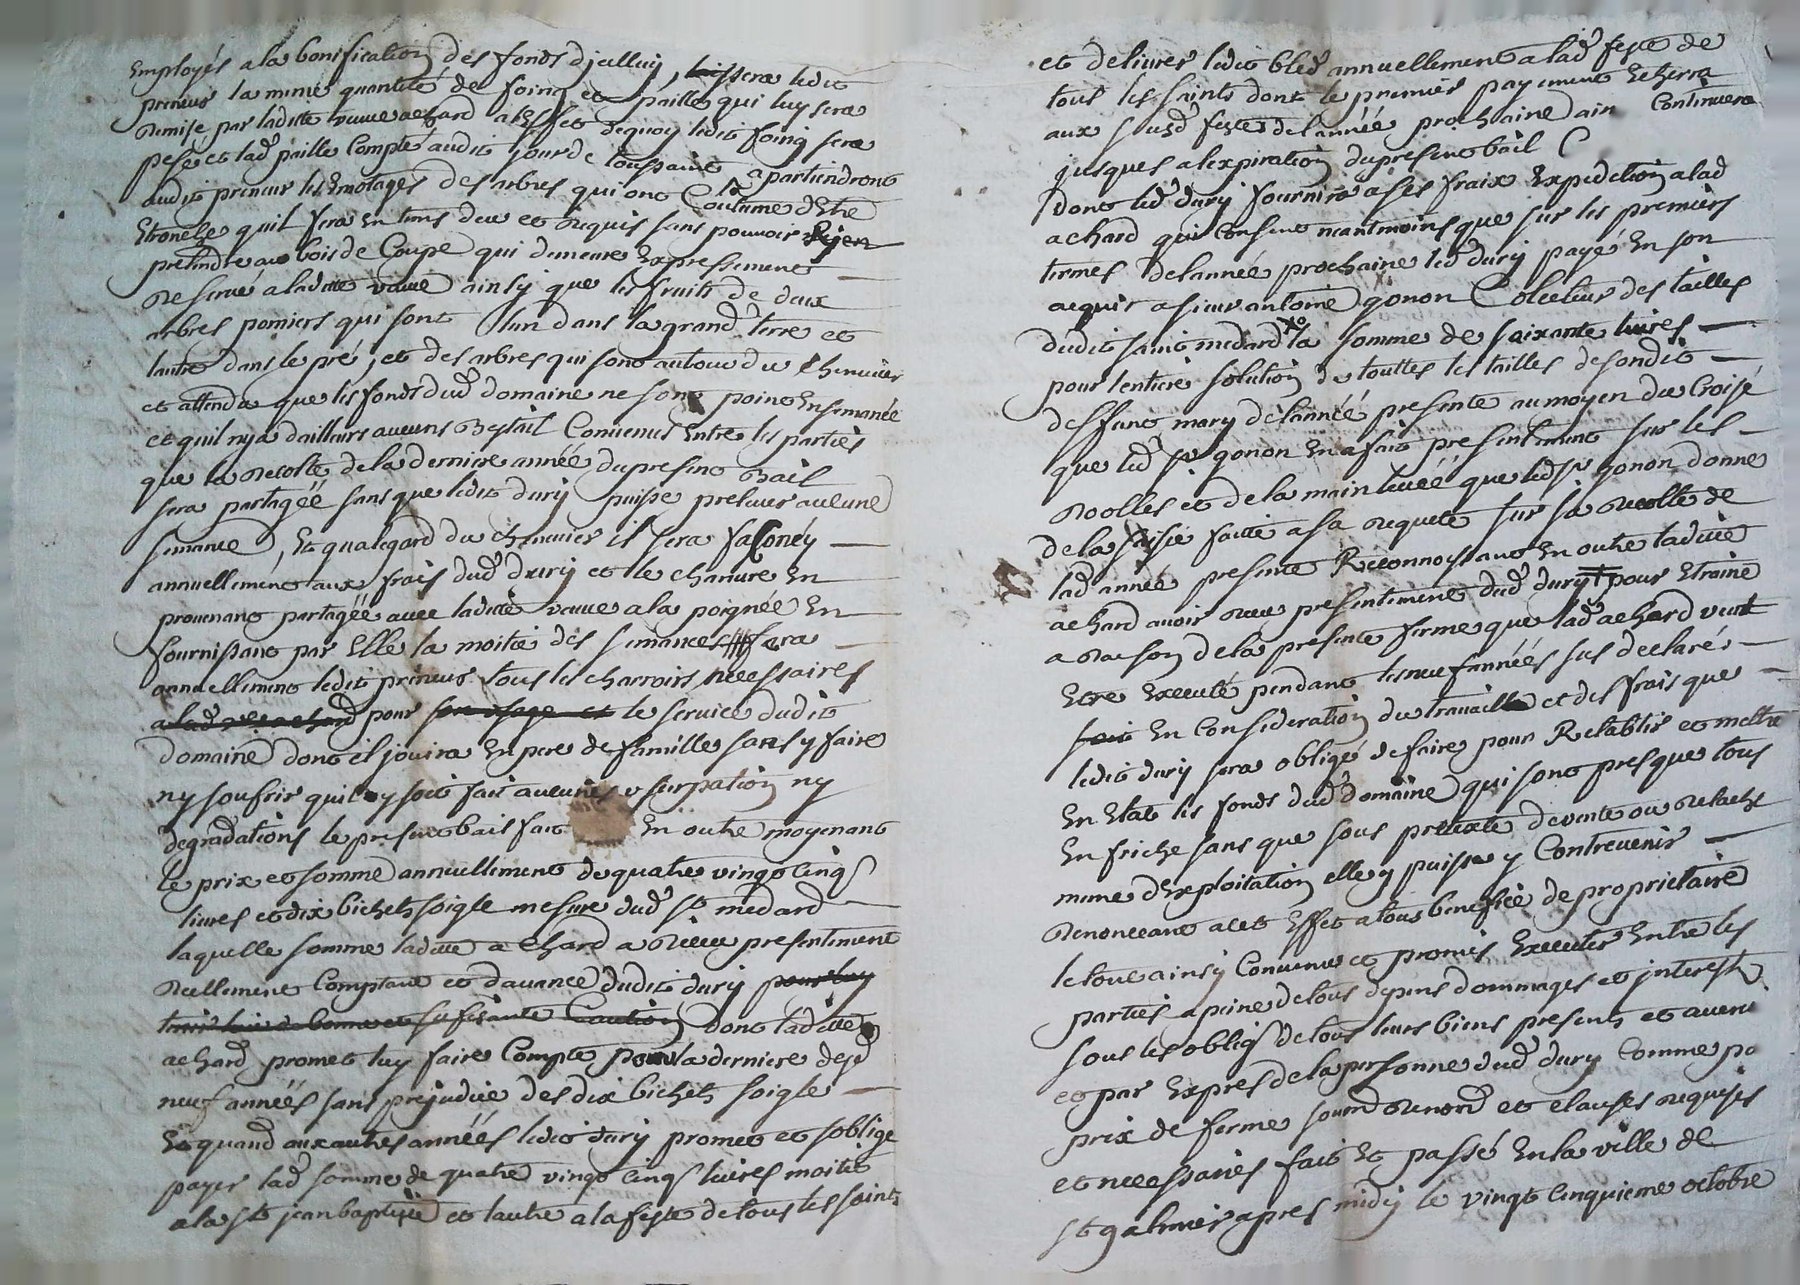 Employés a la bonification des fonds d'jcelluy, laissera ledit
preneur la meme quantité de foing et paille qui luy sera
Remise par laditte veuve achard a l'effet dequoy ledit foing sera
pesé et lad paille Compté audit jour de toussaint apartiendront
audit preneur les Emotages des arbres qui ont la Coutume d'Etre
Etronché quil fera En tems deue et Requis sans pouvoir Rien
pretendre au bois de Coupe qui demeure Expressement
Reservé a laditte veuve ainsy que les fruits de deux
arbres pomiers qui sont l'un dans la grand terre et
lautre dans le pré, et des arbres qui sont autour du chenevier
et attendu que les fonds dud domaine ne sont point Ensemancé
et quil nya d'aillieurs aucuns Bestail Convenus Entre les parties
que la Recolte de la derniere année du present Bail
sera partagéé sans que ledit dury puisse prelever aucune
semance, Et qualegard du chenevier il sera faconéy
annuellement aux frais dud dury et le chanvre En
provenant partagéé avec laditte veuve a la poignée En
fournissant par Elle la moitié des semances fera
annuellement ledit preneur tous les charroirs necessaires
a lad ve achard pour son usage et le service dudit
domaine dont il jouira En pere de famille sans y faire
ny soufrir quil y soit fait aucunes usurpation ny
degradations le present bail fait En outre moyenant
le prix et somme annuellement de quatre vingt Cinq
livres et dix bichets soigle mesure dud St medard
laquelle somme laditte achard a Receu presentement
Reellement Comptant et davance dudit dury pour luy
bonne et sufisante Caution dont laditte
achard promet luy faire Compte pour la derniere desd
neuf années sans prejudice des dix bichets soigle
Et quand aux autres annéés ledit dury promet et soblige
payer lad somme de quatre vingt Cinq livres moitié
a la St jean baptiste et lautre a la feste de tous les saints
et delivrer ledit bled annuellement a lad feste de
tous les saints dont le premier payement
aux susd feste de lannéé prochaine ain Continuera
jusques a lexpiration du present bail
dont led dury fournira a ses fraix Expedition a lad
achard qui Consent neantmoins que sur les premiers
termes de lannéé prochaine led dury payé En son
acquis a sieur antoine gonon Colecteur des tailles
dudit saint medard la somme de soixante livres
pour lentiere solution de touttes les tailles de sondit
deffunt mary de lannéé presente au moyen du Croisé
que led sr gonon En a fait presentement sur les
Roolles et de la main levéé que led sr gonon donne
de la saisie faitte a sa Requete sur sa Recolte de
lad année presente Reconnoissant En outre laditte
achard avoir Receu presentement dud dury pour Etraine
a Raison de la presente ferme que lad achard veut
Etre Executé pendant les neuf annéés sus declarés
soit En Consideration du travaille et des frais que
ledit dury sera obligé de faire pour Retablir et mettre
En Etat les fonds dud domaine qui sont presque tous
En friche sans que sous pretexte de vente ou Relache
meme d'Exploitation elle y puisse y Contrevenir
Renonceant a cet Effet a tous benefice de proprietaire
le tout ainsy Convenu et promis Executer Entre les
parties a peine de tous depens dommages et interests
sous les oblig de tous leurs biens presents et aveni
et par Expres de la personne dud dury Comme po
prix de ferme soum Renond et clauses requises
et necessaires fait Et passé En la ville de
St galmier apres midy le vingt Cinquieme octobre